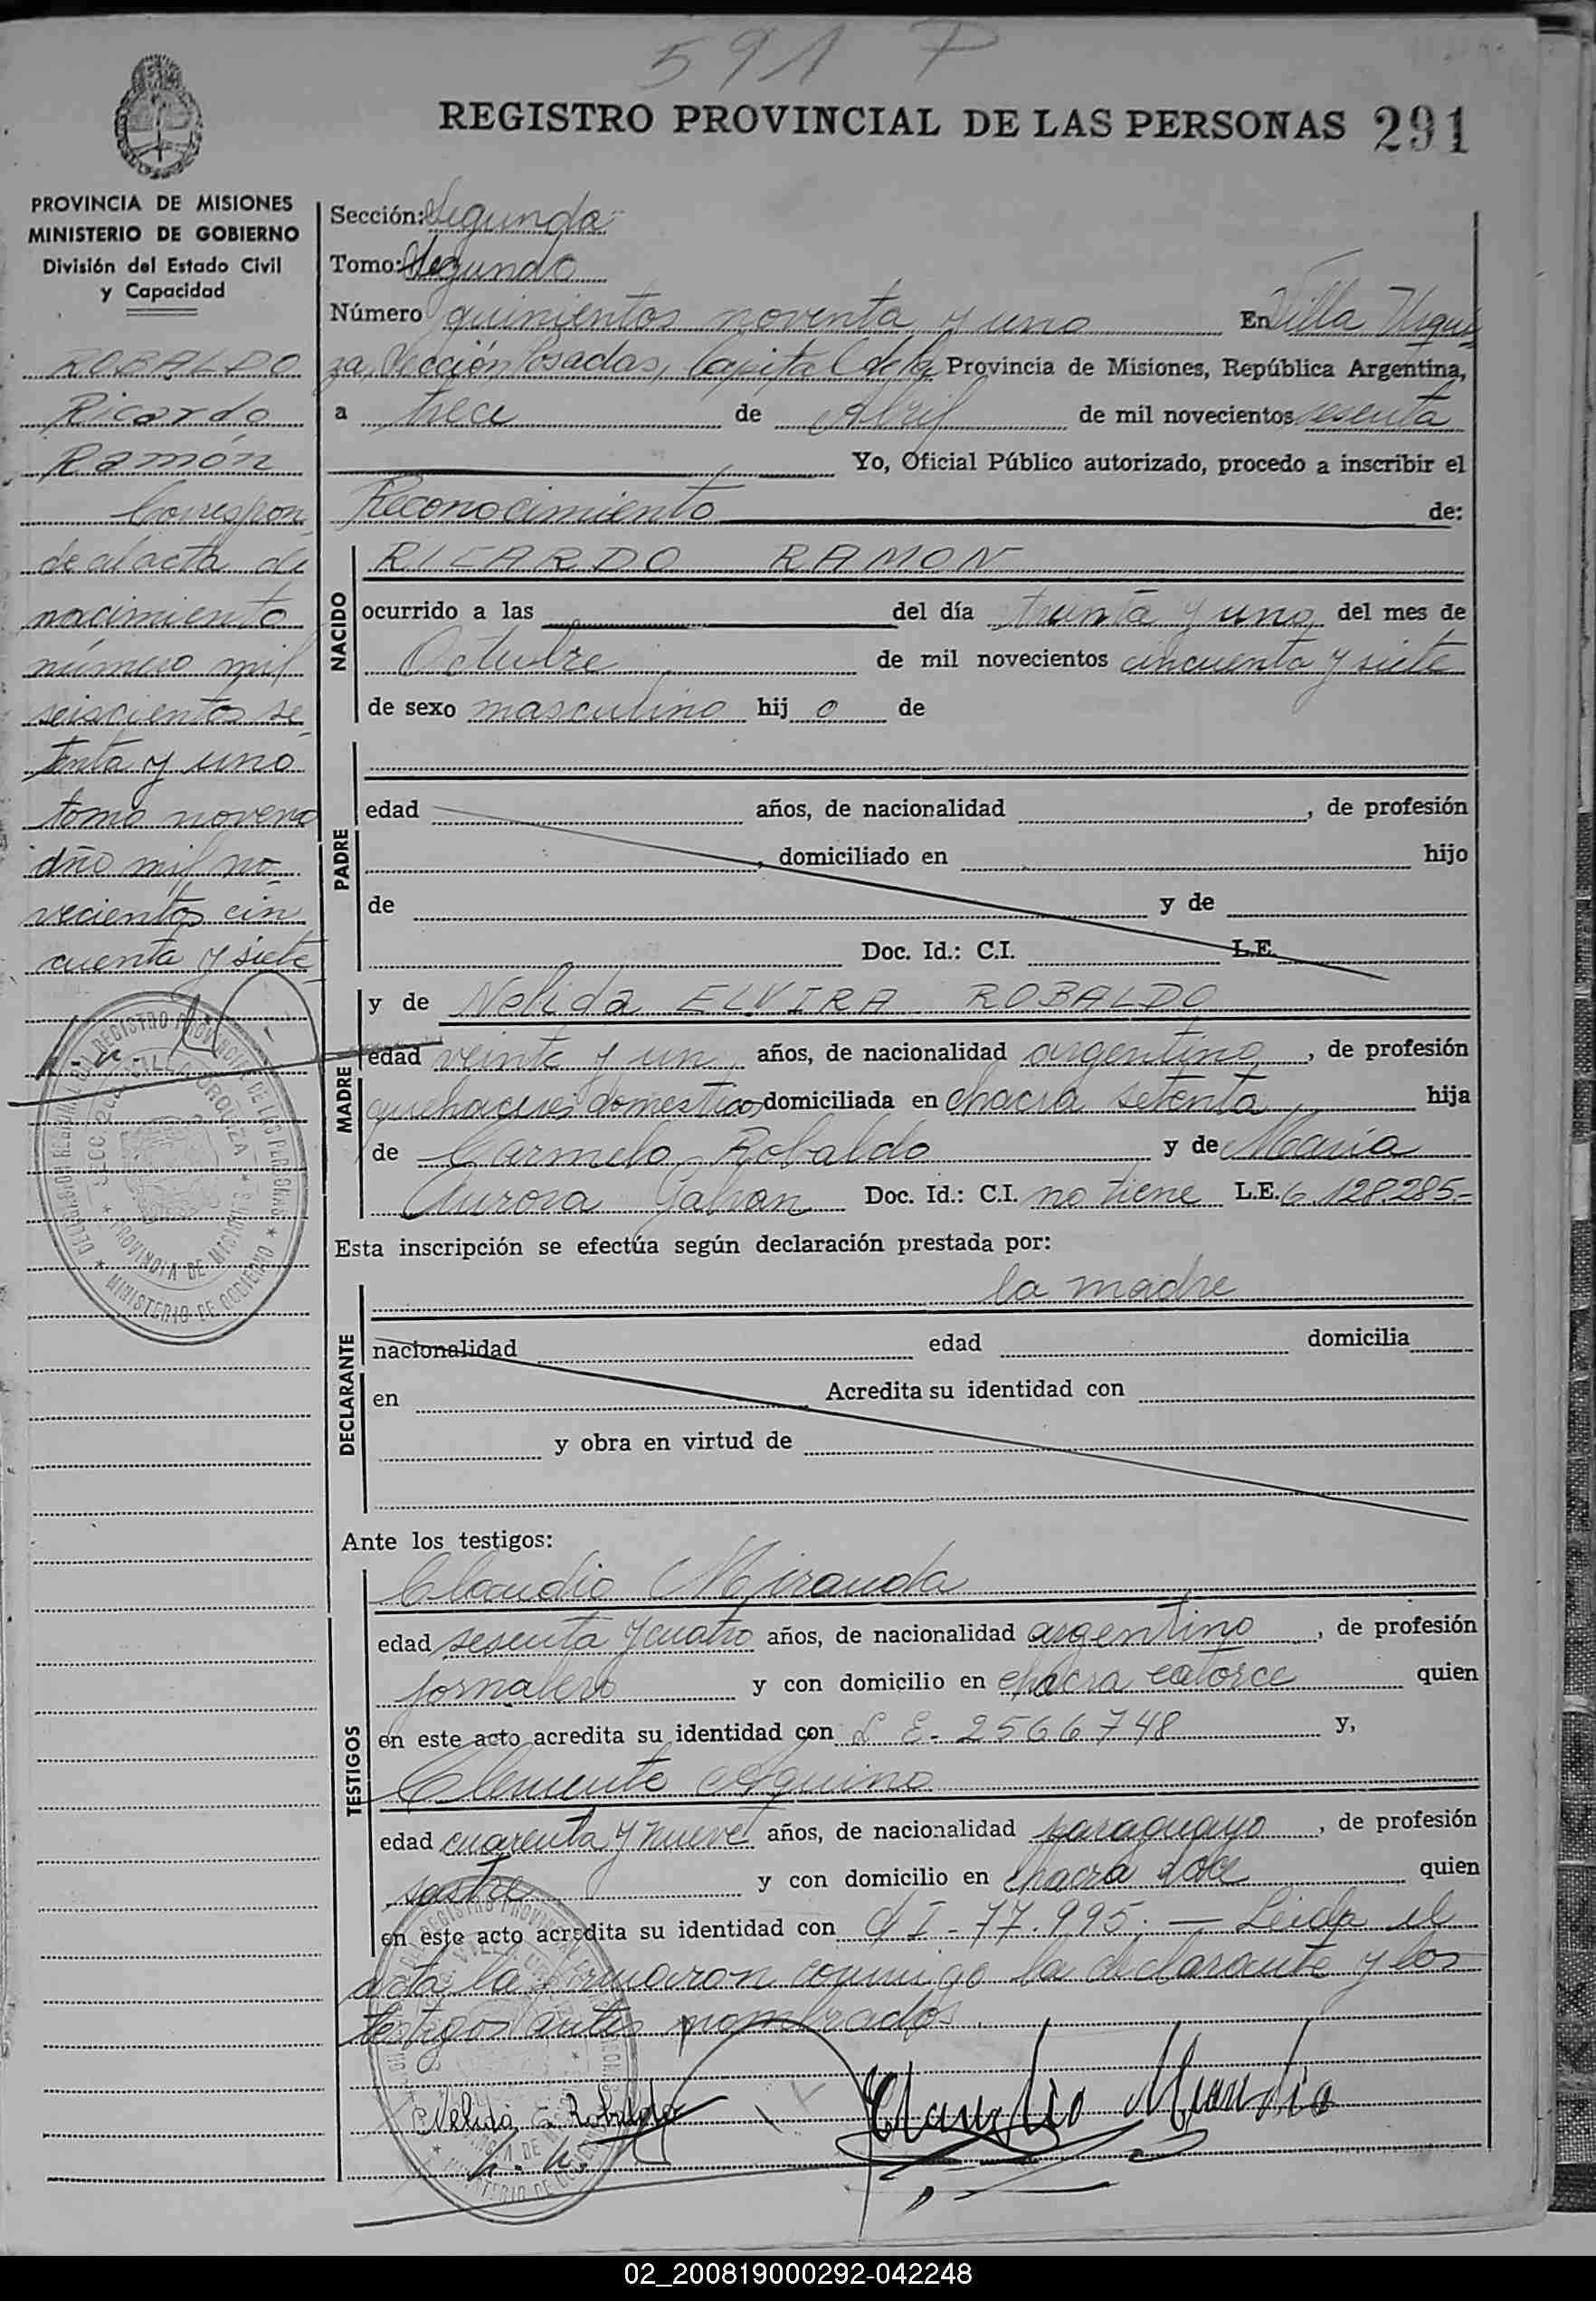 591 P
REGISTRO PROVINCIAL DE LAS PERSONAS 291
PROVINCIA DE MISIONES
MINISTERIO DE GOBIERNO
División del Estado Civil
y Capacidad
ROBALDO
Ricardo
Ramón
Correspon
de al acta de
nacimiento
número mil
seiscientos se
tenta y uno
tomo noveno
año mil no
vecientos cin
cuenta y siete
Sección: Segunda
Tomo: Segundo
Número quinientos noventa y uno En Villa Urqui
za, Sección Posadas, Capital de la Provincia de Misiones, República Argentina,
a trece de Abril de mil novecientos sesenta
Yo, Oficial Público autorizado, procedo a inscribir el
Reconocimiento de:
NACIDO
RICARDO RAMON
ocurrido a las del día treinta y uno del mes de
Octubre de mil novecientos cincuenta y siete
de sexo masculino hij o de
PADRE
edad años, de nacionalidad , de profesión
, domiciliado en hijo
de y de
Doc. Id.: C.I. L.E.
MADRE
y de Nelida ELVIRA ROBALDO
edad veinte y un años, de nacionalidad argentina, de profesión
quehaceres domestico domiciliada en chacra setenta hija
de Carmelo Robaldo y de Maria
Aurora Gahan Doc. Id.: C.I. no tiene L.E. 6.128.285-
Esta inscripción se efectúa según declaración prestada por:
DECLARANTE
la madre
nacionalidad edad domicilia
en Acredita su identidad con
y obra en virtud de
Ante los testigos:
TESTIGOS
Claudio Miranda
edad sesenta y cuatro años, de nacionalidad argentino, de profesión
jornalero y con domicilio en chacra catorce quien
en este acto acredita su identidad con L E- 2566748 y,
Clemente Aquino
edad cuarenta y nueve años, de nacionalidad paraguayo, de profesión
sastre y con domicilio en chacra doce quien
en este acto acredita su identidad con C I - 77.995.- Leida el
acta la firmaron conmigo la declarante y los
testigos antes nombrados.
Nelida E Robaldo
Claudio Miranda
02_200819000292-042248